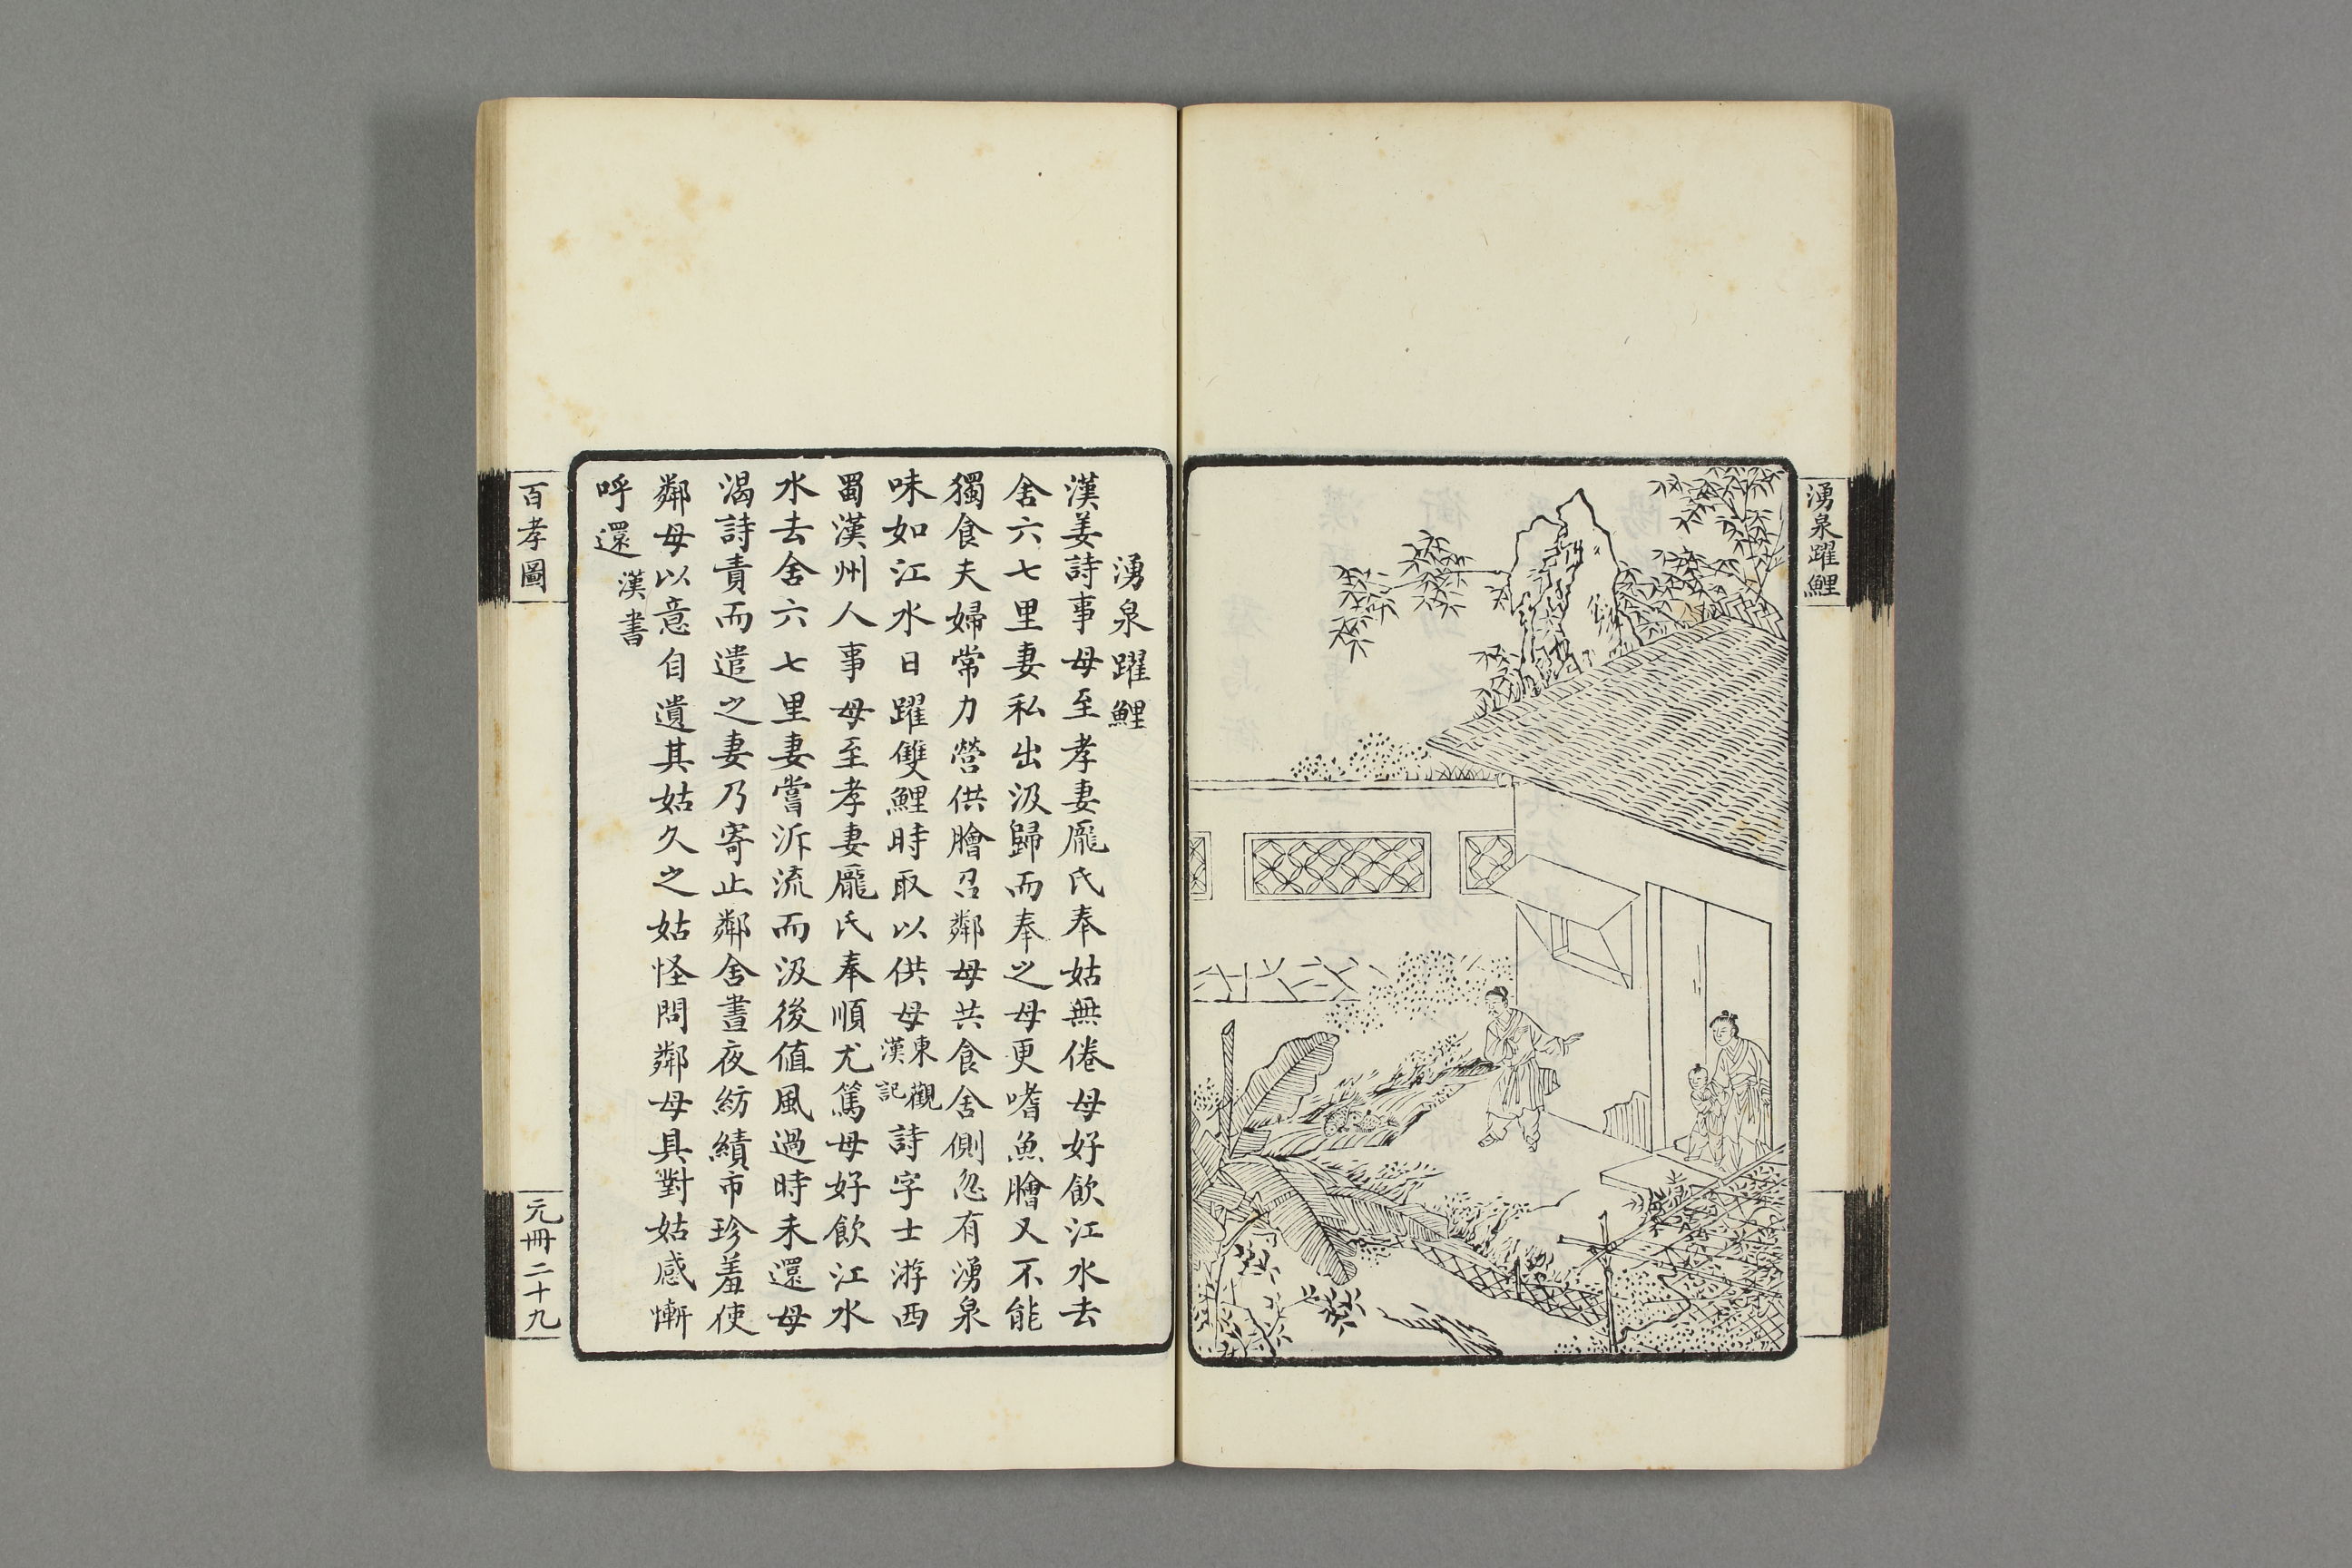 湧泉躍鯉
湧泉躍鯉
漢姜詩事母至孝妻龐氏奉姑無倦母好飲江水去
舍六七里妻私出汲歸而奉之母更嗜魚膾又不能
獨食夫婦常力營供膾召鄰母共食舍側忽有湧泉
味如江水日躍雙鯉時取以供母東觀漢記詩字士游西
蜀漢州人事母至孝妻龐氏奉順尤篤母好飲江水
水去舍六七里妻嘗泝流而汲後值風過時未還母
渴詩責而遣之妻乃寄止鄰舍晝夜紡績市珍羞使
鄰母以意自遺其姑久之姑怪問鄰母具對姑感慚
呼還漢書
百孝圖
元冊二十九